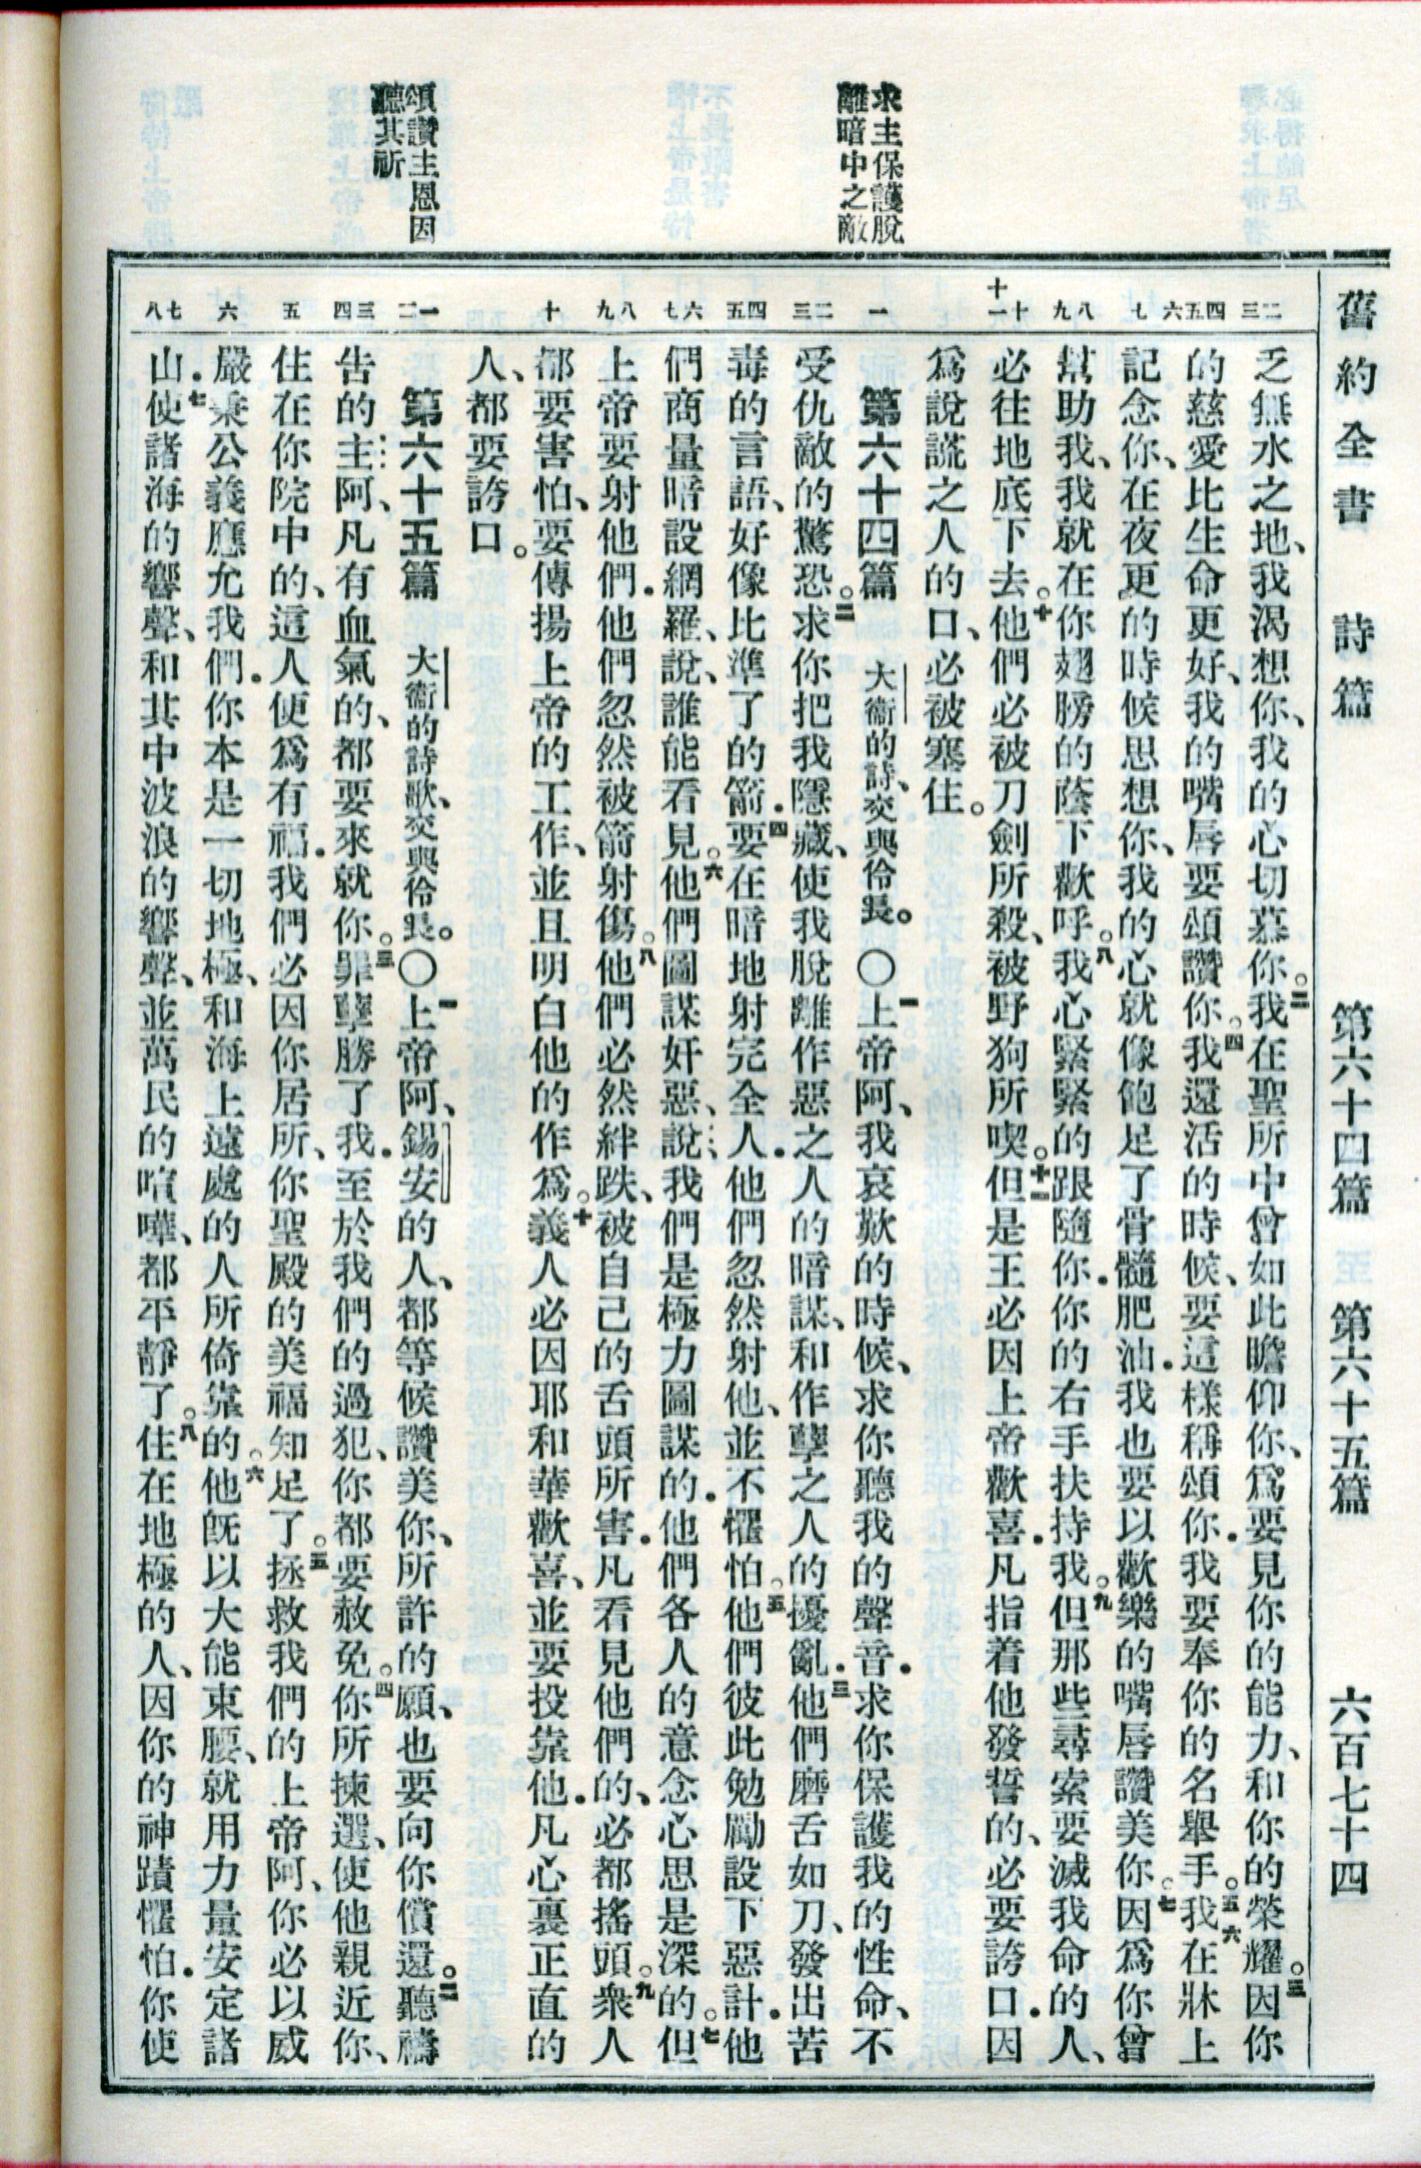 舊約全書　詩篇　第六十四篇　至　第六十五篇　六百七十四
求主保護脫
離暗中之敵
頌讚主恩因
聽其祈
二三
四五六
七
八九
十十一
一
二三
四五
六七
八九
十
一二
三四
五
六
七八
乏無水之地、我渴想你、我的心切慕你。二我在聖所中曾如此瞻仰你、爲要見你的能力、和你的榮耀。三因你
的慈愛比生命更好、我的嘴唇要頌讚你。四我還活的時候、要這樣稱頌你．我要奉你的名舉手。五我六在牀上
記念你、在夜更的時候思想你、我的心就像飽足了骨髓肥油．我也要以歡樂的嘴唇讚美你。七因爲你曾
幫助我、我就在你翅膀的蔭下歡呼。八我心緊緊的跟隨你．你的右手扶持我。九但那些尋索要滅我命的人、
必往地底下去。十他們必被刀劍所殺、被野狗所喫。十一但是王必因上帝歡喜．凡指着他發誓的、必要誇口．因
爲說謊之人的口、必被塞住。
第六十四篇　大衞的詩、交與伶長。〇一上帝阿、我哀歎的時候、求你聽我的聲音．求你保護我的性命、不
受仇敵的驚恐。二求你把我隱藏、使我脫離作惡之人的暗謀、和作孽之人的擾亂．三他們磨舌如刀、發出苦
毒的言語、好像比準了的箭．四要在暗地射完全人．他們忽然射他、並不懼怕。五他們彼此勉勵設下惡計．他
們商量暗設網羅、說、誰能看見。六他們圖謀奸惡、說我們是極力圖謀的．他們各人的意念心思是深的。七但
上帝要射他們．他們忽然被箭射傷。八他們必然絆跌、被自己的舌頭所害．凡看見他們的、必都搖頭。九衆人
都要害怕、要傳揚上帝的工作、並且明白他的作爲。十義人必因耶和華歡喜、並要投靠他．凡心裏正直的
人、都要誇口。
第六十五篇　大衞的詩歌、交與伶長。〇一上帝阿、錫安的人、都等候讚美你、所許的願、也要向你償還。二聽禱
告的主阿、凡有血氣的、都要來就你。三罪孽勝了我．至於我們的過犯、你都要赦免。四你所揀選、使他親近你、
住在你院中的、這人便爲有福．我們必因你居所、你聖殿的美福知足了。五拯救我們的上帝阿、你必以威
嚴乘公義應允我們．你本是一切地極、和海上遠處的人所倚靠的。六他旣以大能束腰、就用力量安定諸
山．七使諸海的響聲、和其中波浪的響聲、並萬民的喧嘩、都平靜了。八住在地極的人、因你的神蹟懼怕．你使